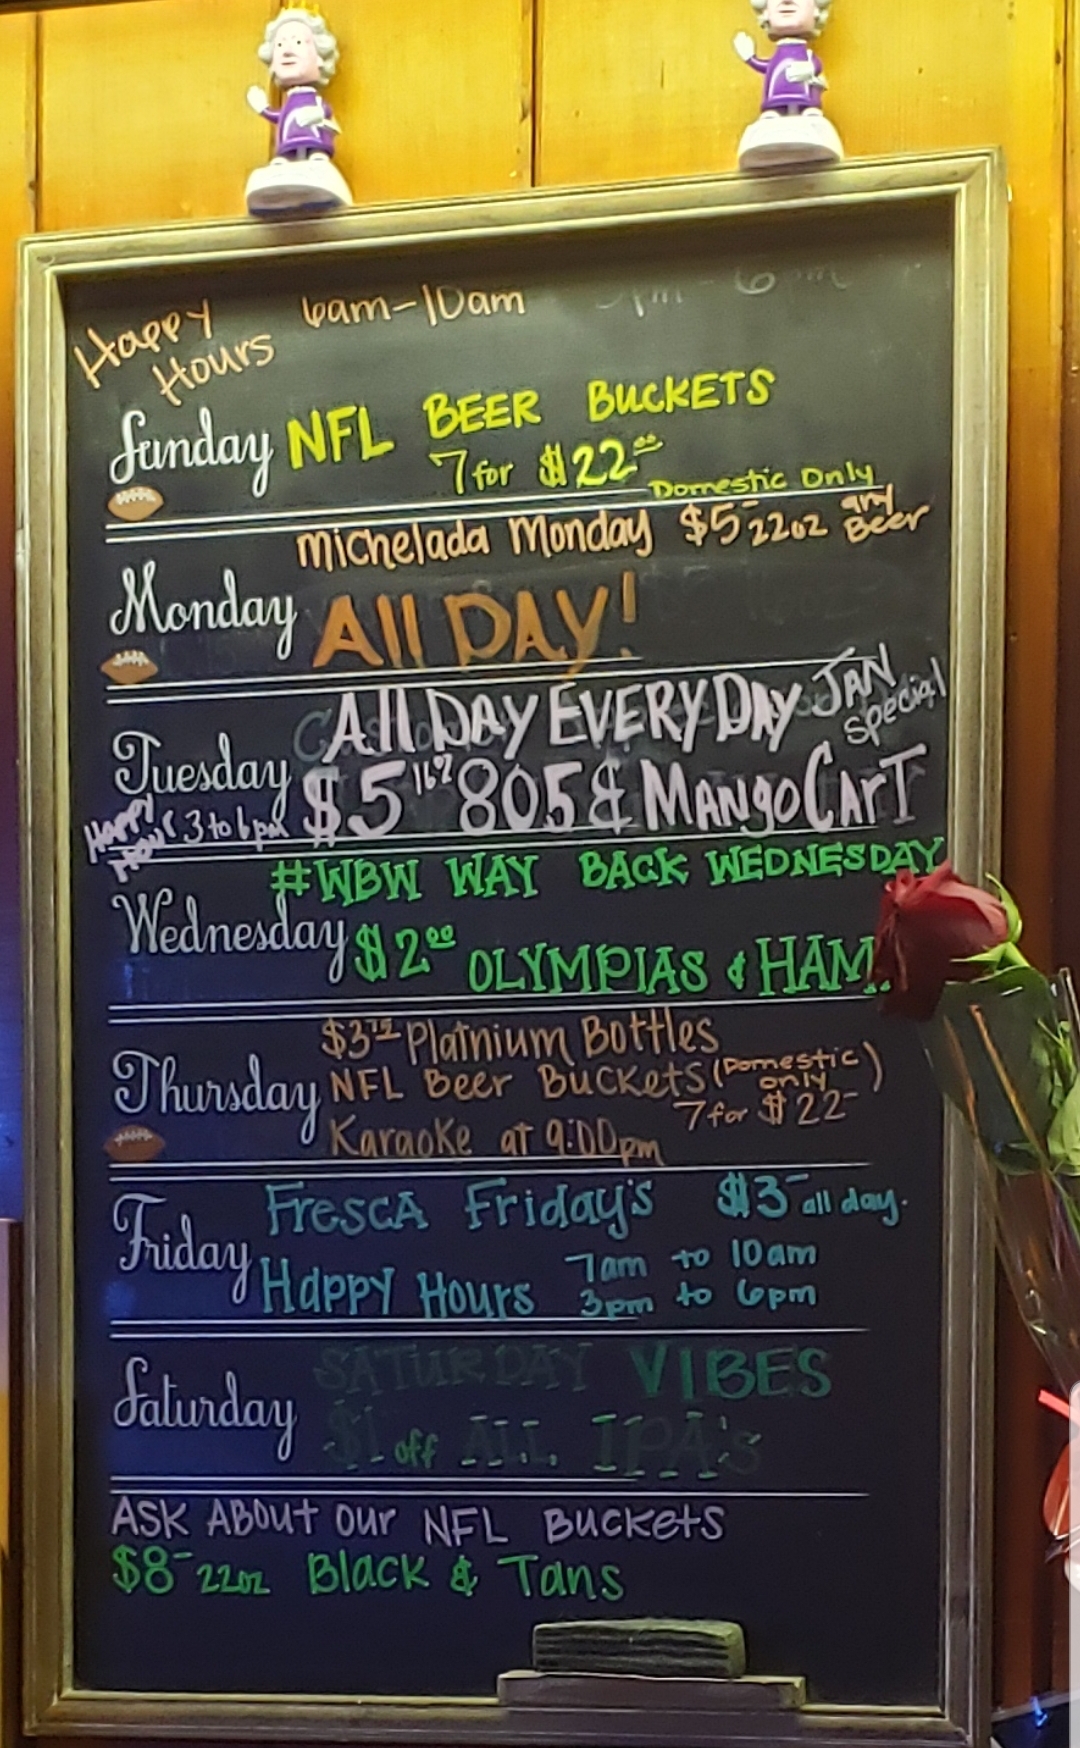 Happy 6am-10am
Hours
Sunday NFL BEER BUCKETS
7 for $22.00
Domestic Only
Michelada Monday $5- 22oz any Beer
Monday All DAY!
All DAY EVERY DAY JAN special
Tuesday $5 805 & MANgo CarT
Happy Hour 3 to 6pm
#WBW WAY BACK WEDNESDAY
Wednesday $2.00 OLYMPIAS & HAM
$3 Platnium Bottles
Thursday NFL Beer Buckets (Domestic only)
7 for $22-
Karaoke at 9:00pm
Fresca Friday's $3- all day.
Friday Happy Hours 7am to 10am
3pm to 6pm
SATURDAY VIBES
Saturday $1 off ALL IPA's
ASK ABOUt our NFL Buckets
$8- 22oz Black & Tans